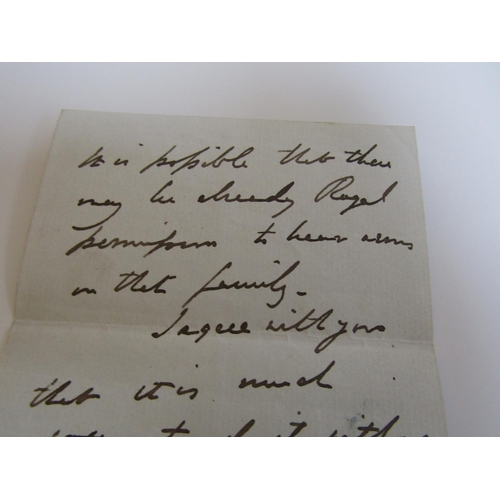 It is possible that there
may be already Royal
permission to bear arms
in that family.
I agree with you
that it is much
to do it